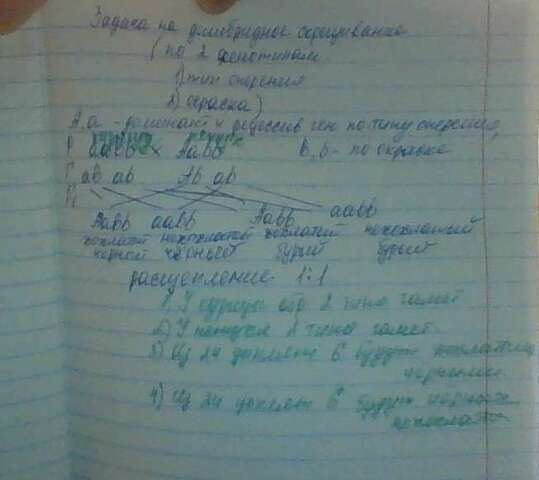 Задача на дигибридное скрещивание
(по 2 фенотипам
1) тип оперения
2) окраска)
A, a - доминант и рецессив ген по типу оперения,
P aaBb × Aabb B, b - по окраске
G aB ab Ab ab
F1
AaBb aaBb Aabb aabb
хохлатый нехохлатый хохлатый нехохлатый
черный черный бурый бурый
расщепление 1:1
1) У курицы 2 типа гамет
2) У петуха 2 типа гамет.
3) Из 24 цыплят 6 будут хохлатыми
черными.
4) Из 24 цыплят 6 будут